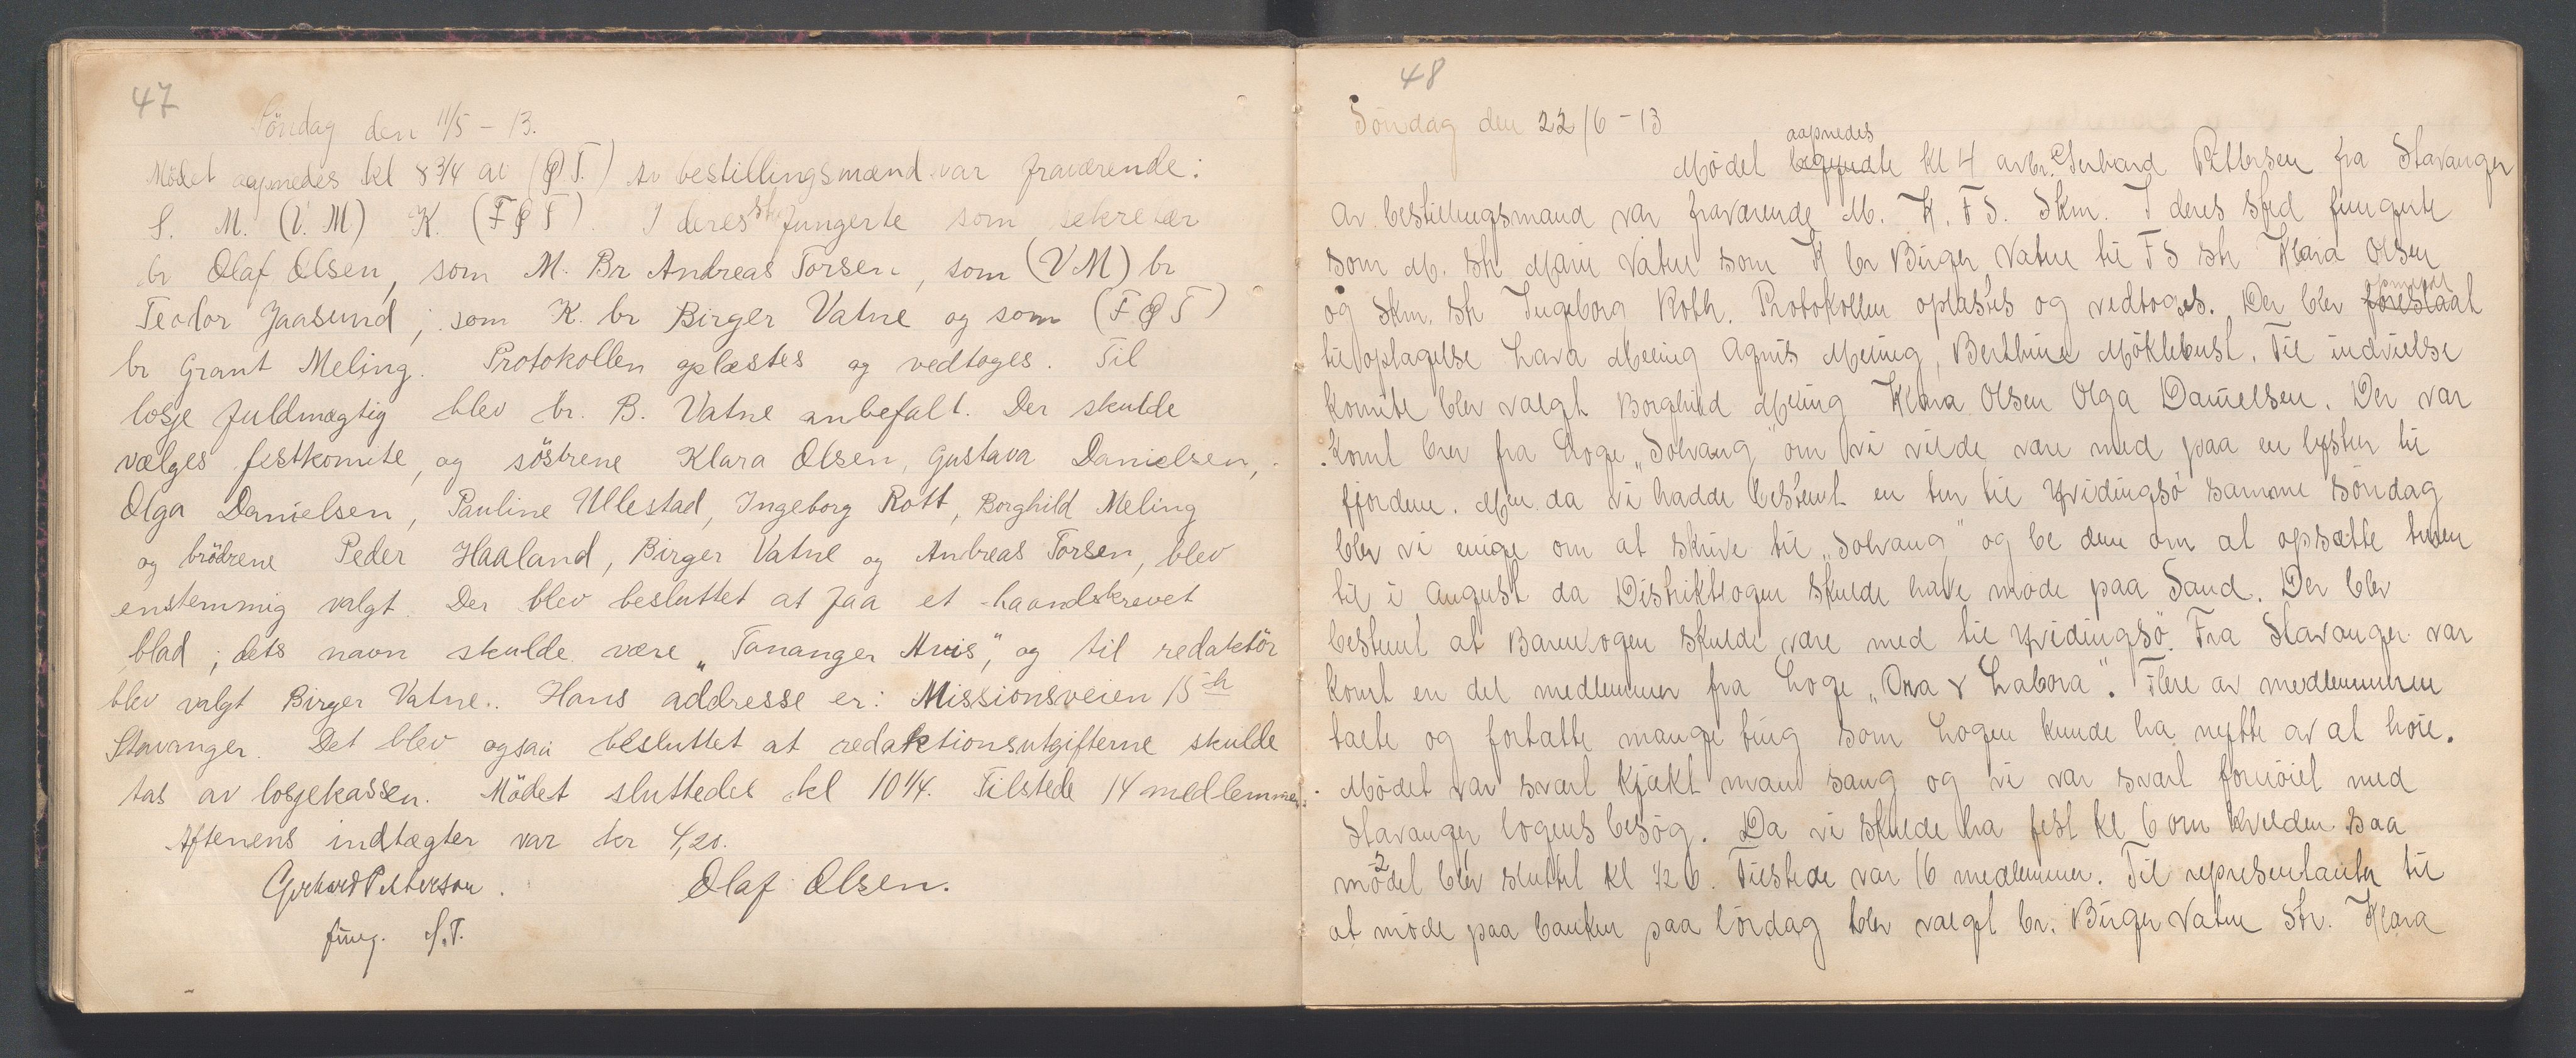 47
Söndag den 11/5 - 13.
Mödet aapnedes kl 8 3/4 av (F T.) Av bestillingsmænd var fraværende:
S. M. (V. M) K. (F T). I deres sted fungerte som sekretær
br Olaf Olsen, som M. Br Andreas Torsen, som (V M) br
Teodor Jaasund, som K. br Birger Vatne og som (F T)
br Grant Meling. Protokollen oplæstes og vedtoges. Til
losje fuldmægtig blev br. B. Vatne anbefalt. Der skulde
vælges festkomite, og söstrene Klara Olsen, Gustava Danielsen,
Olga Danielsen, Pauline Ullestad, Ingeborg Rott, Borghild Meling
og brödrene Peder Haaland, Birger Vatne og Andreas Torsen, blev
enstemmig valgt. Der blev besluttet at faa et haandskrevet
blad; dets navn skulde være „Tananger Avis", og til redaktör
blev valgt Birger Vatne. Hans addresse er: Missionsveien 15
Stavanger. Det blev ogsaa besluttet at redaktionsutgifterne skulde
tas av losjekassen. Mödet sluttedes kl 10 1/4. Tilstede 14 medlemmer.
Aftenens indtægter var kr 4,20.
Gerhard Pettersen. Olaf Olsen.
fung. S.T.
48
Söndag den 22/6 - 13
aapnedes
Mödet begyndte kl 4 av br. Gerhard Pettersen fra Stavanger
Av bestillingsmænd var fraværende M. K. F S. Skm. I deres sted fungerte
som M. str Marie Vatne som K br Birger Vatne til F S str Klara Olsen
og Skm. str Ingeborg Roth. Protokollen oplæstes og vedtoges. Der blev foreslaat
til optagelse Lava Meling Agnes Meling, Berthine Möklebust. Til indvielse
komite blev valgt Borghild Meling Klara Olsen Olga Danielsen. Der var
komt brev fra Loge „Solvang" om vi vilde være med paa en lysttur til
fjordene. Men da vi hadde bestemt en tur til Hvidingsö samme söndag
blev vi enige om at skrive til „Solvang" og be dem om at opsætte turen
til i August da Distriktlogen skulde have möde paa Sand. Der blev
bestemt at Barnelogen skulde være med til Hvidingsö. Fra Stavanger var
komt en del medlemmer fra Loge „Ora & Labora". Flere av medlemmerne
talte og fortalte mange ting som Logen kunde ha nytte av at höre.
Mödet var svært kjækt mange sang og vi var svært fornöiet med
Stavanger logens besög. Da vi skulde ha fest kl 6 om kvelden saa
mödet blev sluttet kl 1/2 6. Tilstede var 16 medlemmer. Til representanter til
at möde paa banken paa lördag blev valgt br. Birger Vatne Str. Klara